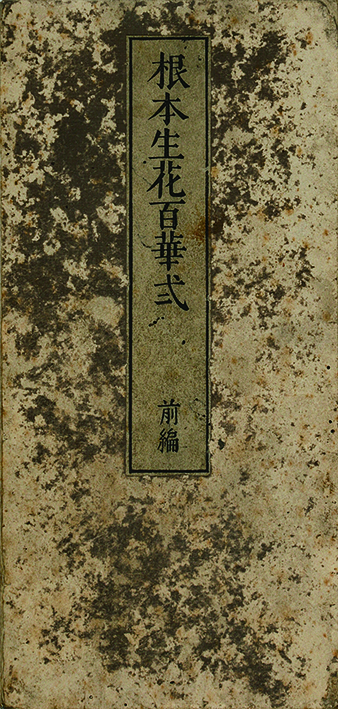 根本生花百華式
前編